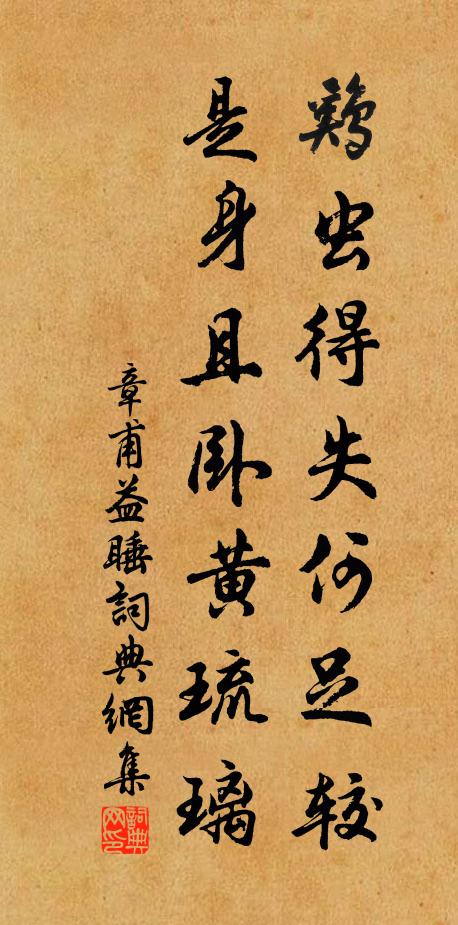 鷄虫得失何足较
是身且卧黄琉璃
章甫益睡詞典網集
詞典網印